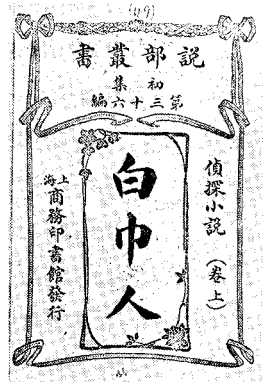 (49)
説部叢書
初集
第三十六編
偵探小説
(卷上)
白巾人
上海商務印書館發行